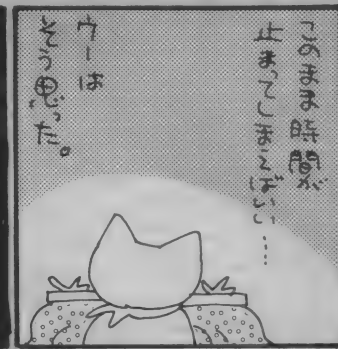 このまま時間が
止まってしまえばいい……
ウーは
そう思った。